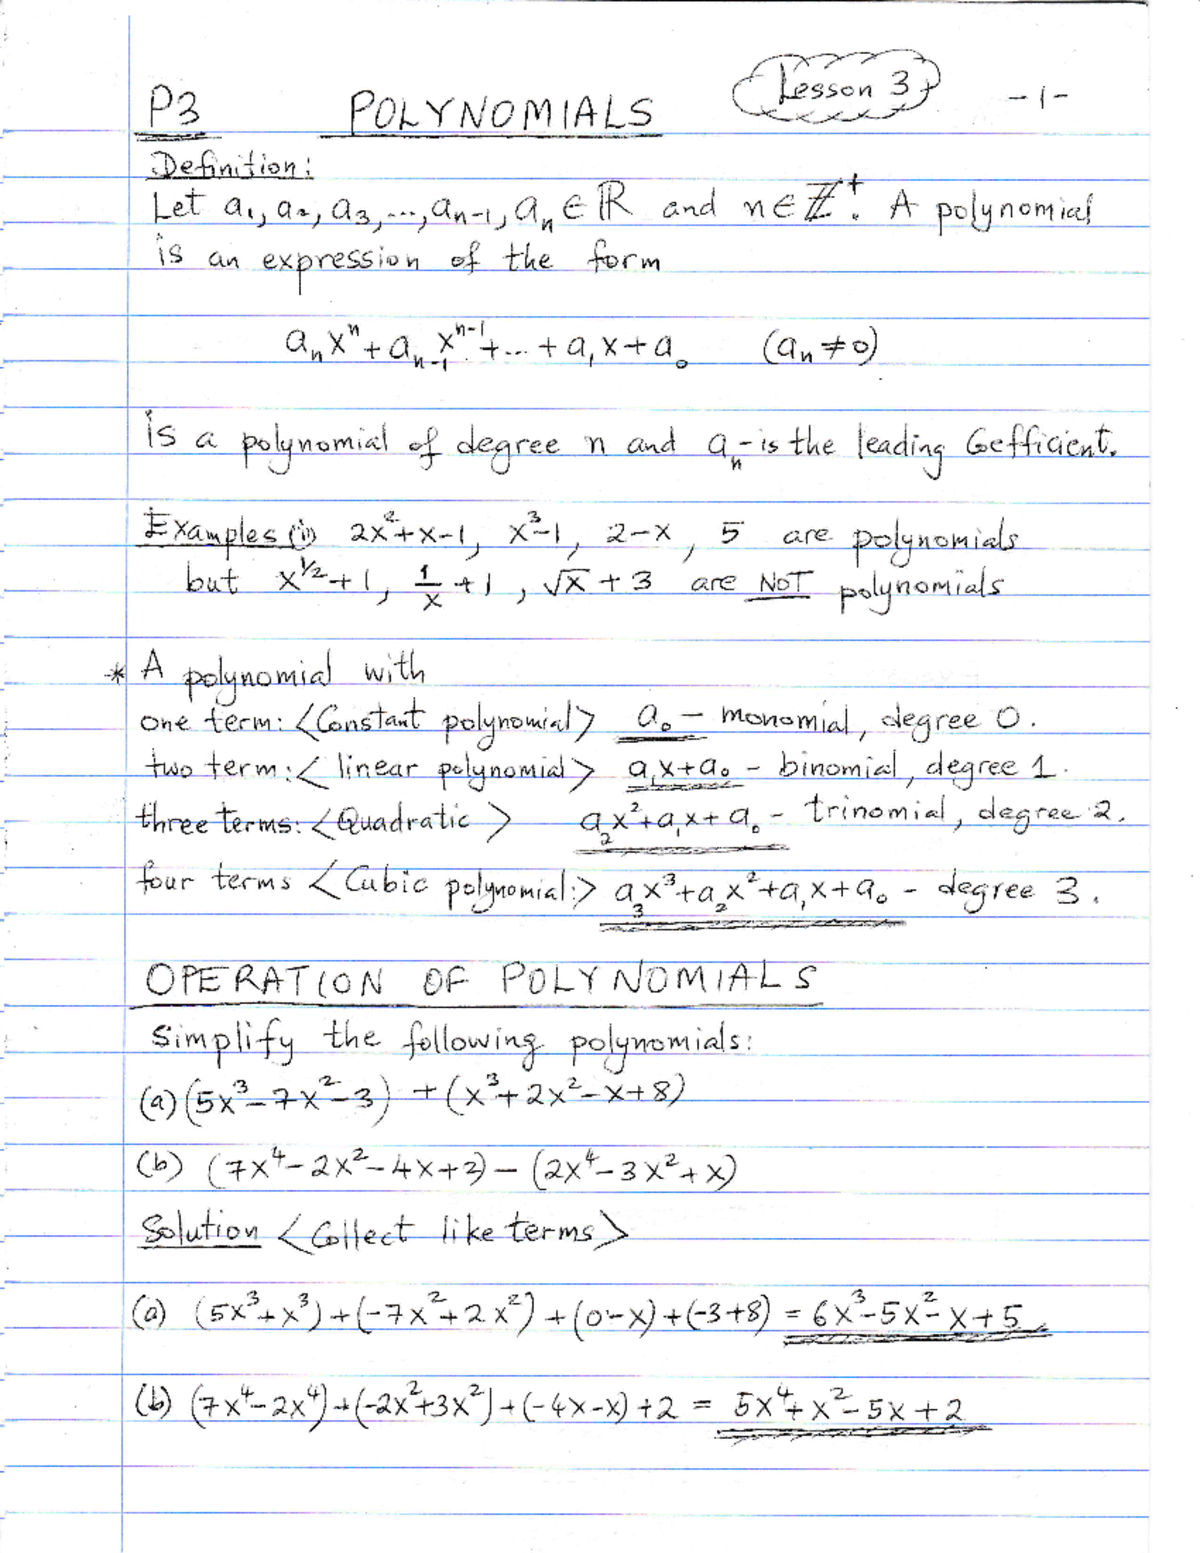 Lesson 3
-1-
P3 POLYNOMIALS
Definition:
Let a₁, a₂, a₃, ..., aₙ₋₁, aₙ ∈ ℝ and n ∈ ℤ⁺. A polynomial
is an expression of the form
aₙxⁿ + aₙ₋₁xⁿ⁻¹ + ... + a₁x + a₀ (aₙ ≠ 0)
is a polynomial of degree n and aₙ - is the leading Coefficient.
Examples (i) 2x²+x-1, x³-1, 2-x, 5 are polynomials
but x^(1/2) + 1, 1/x + 1, √x + 3 are NOT polynomials
* A polynomial with
one term: <Constant polynomial> a₀ - monomial, degree 0.
two term: < linear polynomial> a₁x+a₀ - binomial, degree 1.
three terms: <Quadratic > a₂x²+a₁x+a₀ - trinomial, degree 2.
four terms <Cubic polynomial:> a₃x³+a₂x²+a₁x+a₀ - degree 3.
OPERATION OF POLYNOMIALS
Simplify the following polynomials:
(a) (5x³-7x²-3) + (x³+2x²-x+8)
(b) (7x⁴-2x²-4x+2) - (2x⁴-3x²+x)
Solution <Collect like terms>
(a) (5x³+x³)+(-7x²+2x²)+(0-x)+(-3+8) = 6x³-5x²-x+5
(b) (7x⁴-2x⁴)+(-2x²+3x²)+(-4x-x)+2 = 5x⁴+x²-5x+2